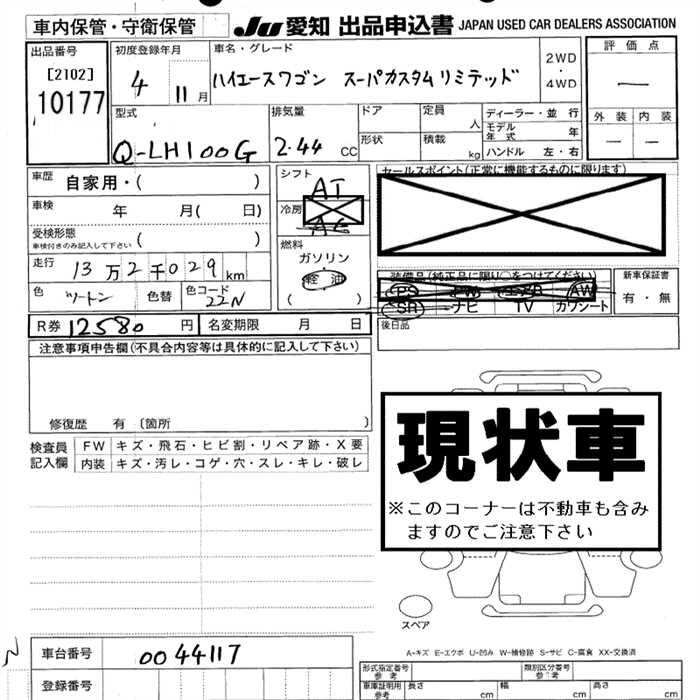 車内保管・守衛保管
JU 愛知 出品申込書 JAPAN USED CAR DEALERS ASSOCIATION
出品番号
[2102]
10177
初度登録年月
4 11月
車名・グレード
ハイエースワゴン スーパーカスタムリミテッド
2WD
・
4WD
評価点
—
外装 内装
— —
型式
Q-LH100G
排気量
2.44 CC
ドア
定員
人
形状
積載
kg
ディーラー・並行
モデル年式
年
ハンドル 左・右
車歴 自家用・( )
車検 年 月( 日)
受検形態
車検付きのみ記入して下さい ( )
走行 13万2千029km
色 ツートン 色替 色コード 22N
シフト
AT
冷房
AC
燃料
ガソリン
軽油
( )
セールスポイント(正常に機能するものに限ります)
装備品(純正品に限り○をつけてください)
PS PW エアB AW
SR ナビ TV カワシート
新車保証書
有・無
後日品
R券 12580 円 名変期限 月 日
注意事項申告欄(不具合内容等は具体的に記入して下さい)
修復歴 有 〔箇所 〕
検査員記入欄
FW キズ・飛石・ヒビ割・リペア跡・X要
内装 キズ・汚レ・コゲ・穴・スレ・キレ・破レ
現状車
※このコーナーは不動車も含み
ますのでご注意下さい
スペア
A-キズ E-エクボ U-凹み W-補修跡 S-サビ C-腐食 XX-交換済
車台番号 0044117
登録番号
形式指定番号 参考
類別区分番号 参考
車庫証明用 参考
長さ cm 幅 cm 高さ cm